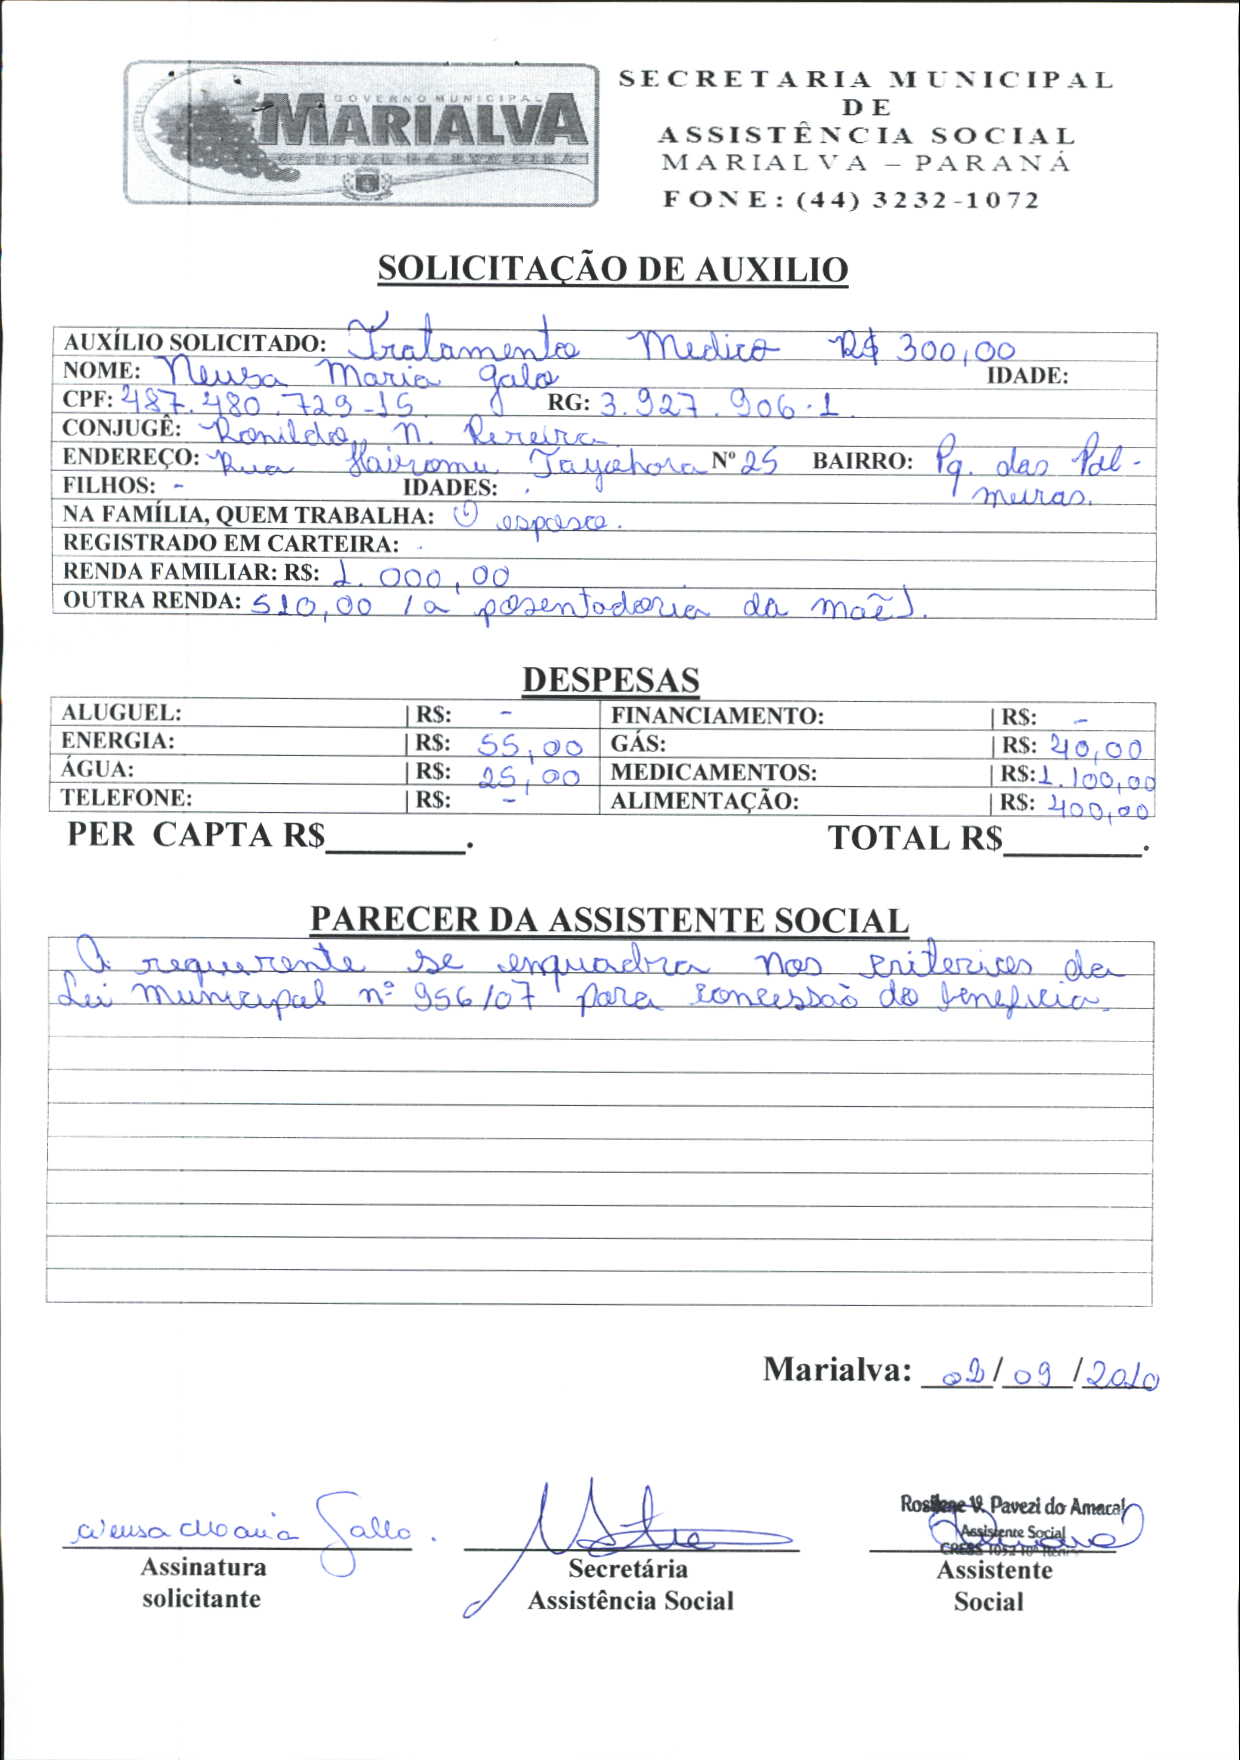 GOVERNO MUNICIPAL
MARIALVA
CAPITAL DA UVA FINA
SECRETARIA MUNICIPAL
DE
ASSISTÊNCIA SOCIAL
MARIALVA – PARANÁ
FONE: (44) 3232-1072
SOLICITAÇÃO DE AUXILIO
AUXÍLIO SOLICITADO: Tratamento Medico R$ 300,00
NOME: Neusa Maria Galo IDADE:
CPF: 487.480.729-15 RG: 3.927.906-1.
CONJUGÊ: Ronildo N. Pereira
ENDEREÇO: Rua Nº 25 BAIRRO: Pq. das Pal-
meiras.
FILHOS: - IDADES: .
NA FAMÍLIA, QUEM TRABALHA: O esposo.
REGISTRADO EM CARTEIRA: -
RENDA FAMILIAR: R$: 1.000,00
OUTRA RENDA: 510,00 (aposentadoria da mãe).
DESPESAS
ALUGUEL: | R$: - FINANCIAMENTO: | R$: -
ENERGIA: | R$: 55,00 GÁS: | R$: 40,00
ÁGUA: | R$: 25,00 MEDICAMENTOS: | R$: 1.100,00
TELEFONE: | R$: - ALIMENTAÇÃO: | R$: 400,00
PER CAPTA R$________. TOTAL R$________.
PARECER DA ASSISTENTE SOCIAL
A requerente se enquadra nos criterios da
Lei municipal nº 956/07 para concessão do beneficio.
Marialva: 02/09/2010
Neusa Maria Gallo.
Rosilene V. Pavezi do Amaral
Assistente Social
Assinatura Secretária Assistente
solicitante Assistência Social Social